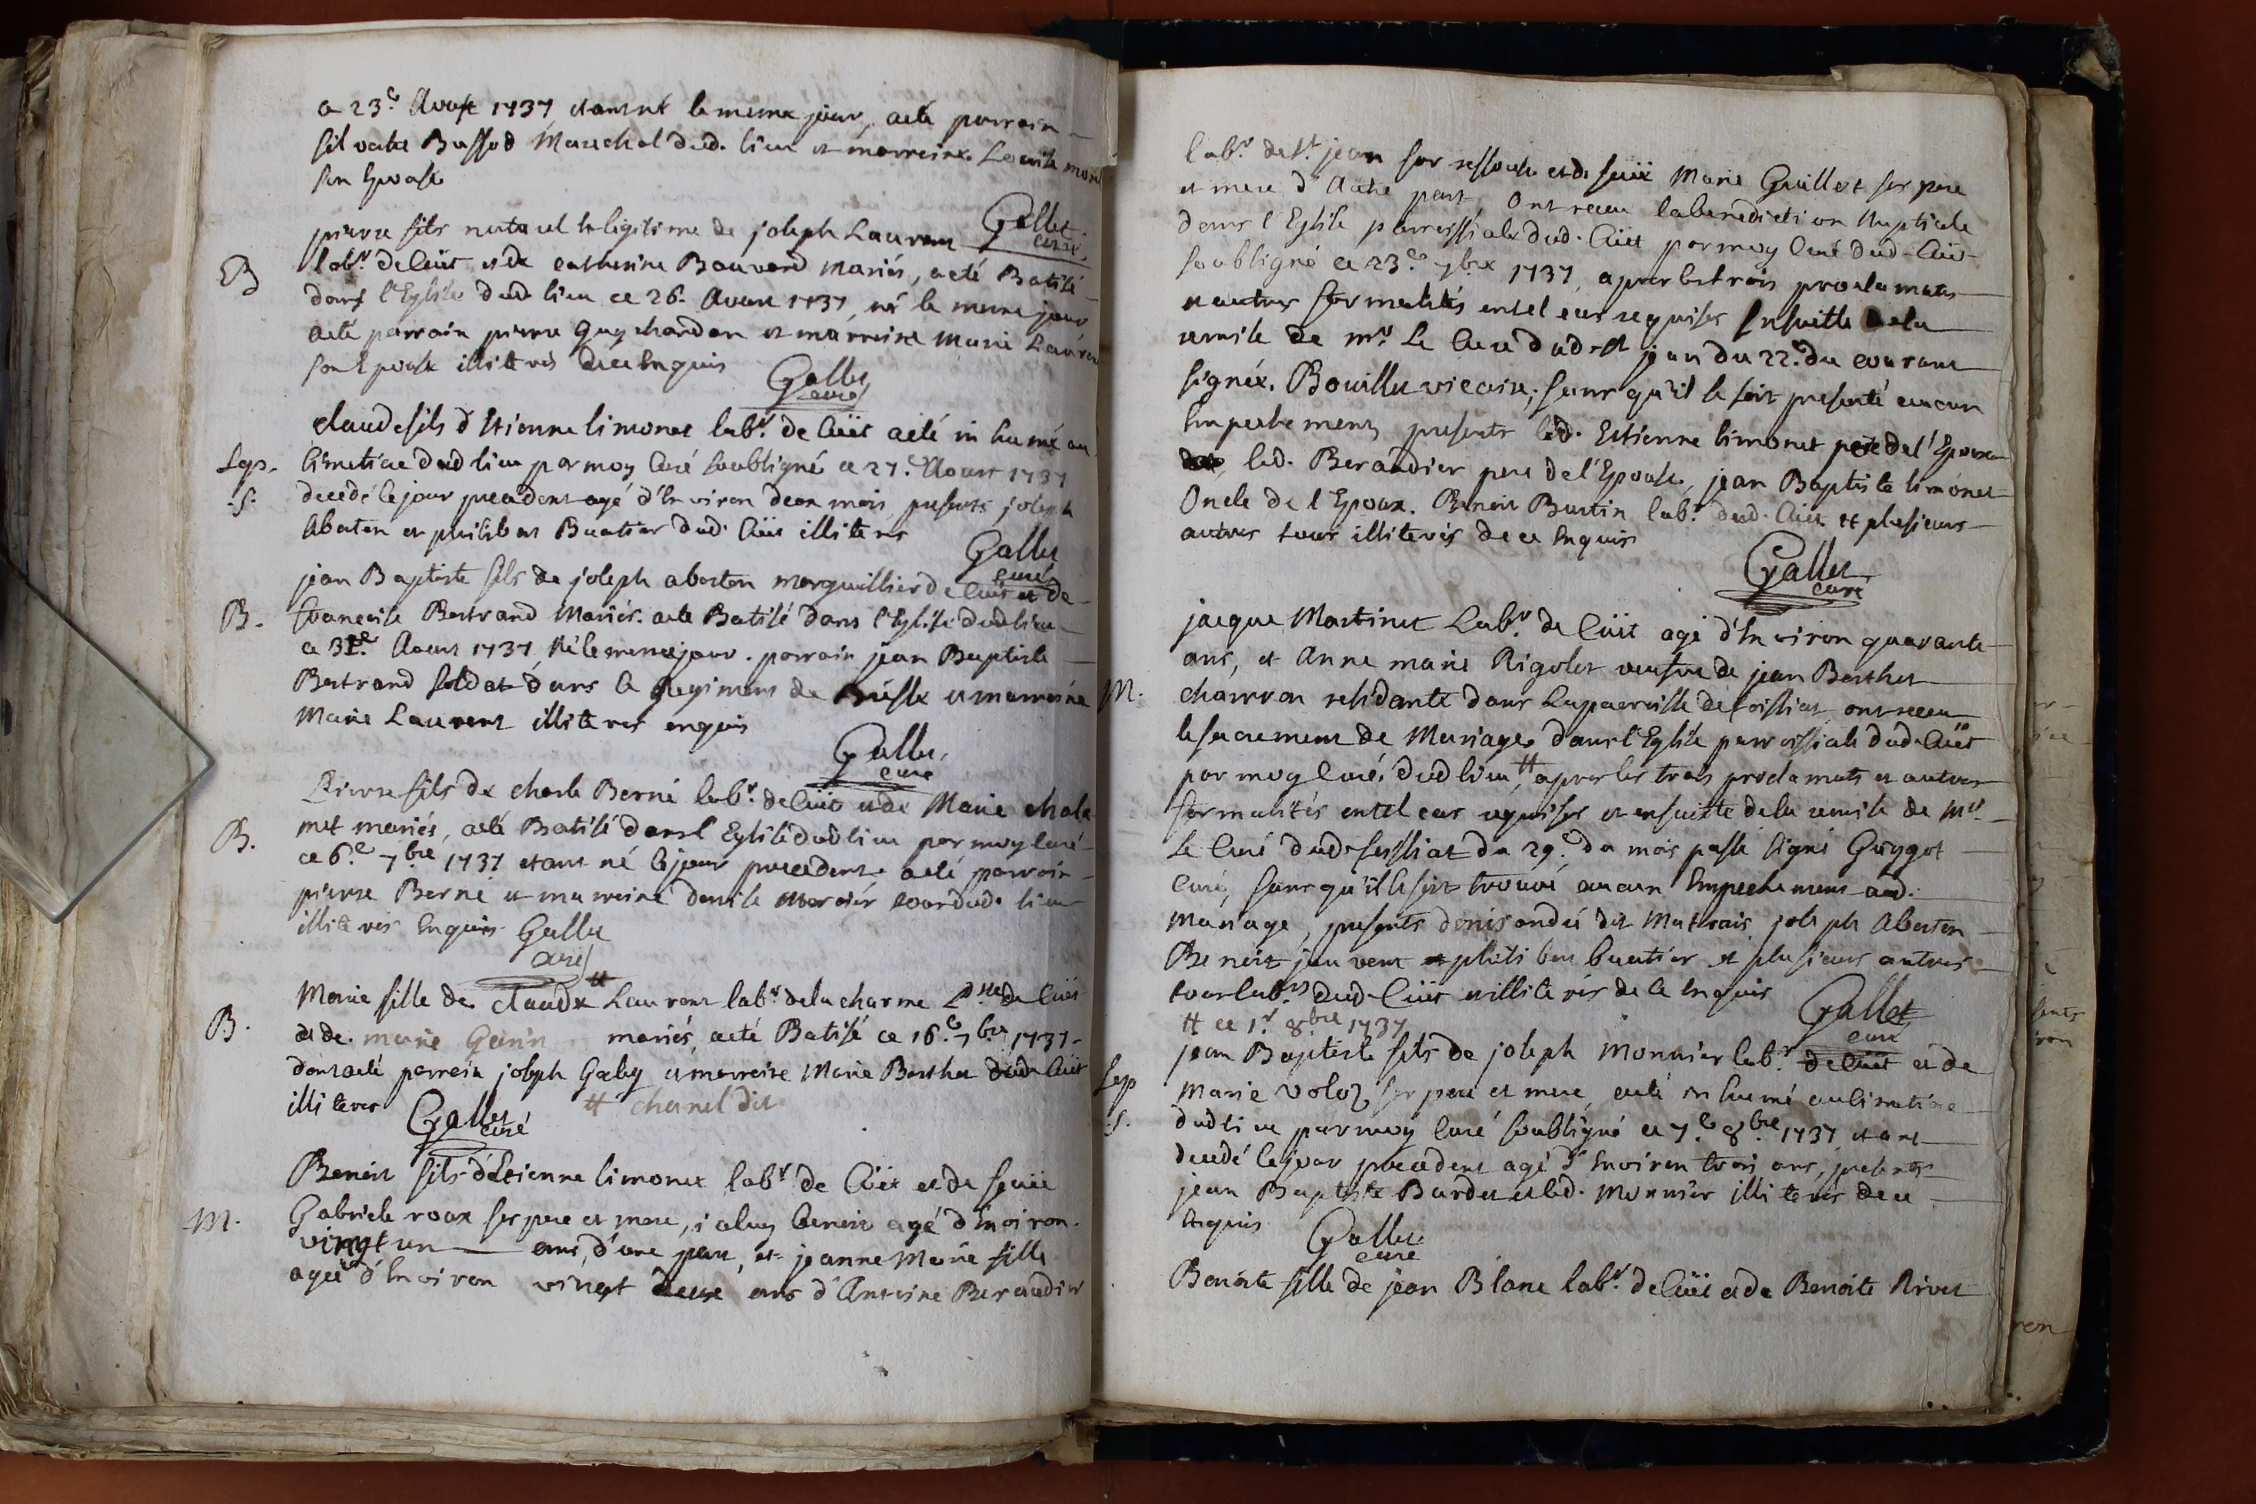 a 23.e Aoust 1737 etant né le meme jour, a eté parrain
silvestre Bussod Marechal dud. lieu et marreine. Louise
son Epouse
Gallet
curé
B
pierre fils naturel et legitime de joseph Laurent
labr. de Cüet et de catherine Bouvard mariés, a eté Batisé
dans l'Eglise dud. lieu ce 26. Aoust 1737, né le meme jour
a eté parrain pierre Guychardon et marreine Marie Lauren
son Epouse illiterés de ce Enquis
Gallet
curé
Sep.
.S.
claude fils d'Etienne limonet labr. de Cüet a eté inhumé au
cimetiere dud lieu par moy Curé soubsigné ce 27.e Aoust 1737
decedé le jour precedent agé d'Environ deux mois, presents joseph
Abaston et philibert Buatier dud. Cüet illiterés
Gallet
curé
B.
jean Baptiste fils de joseph abaston marguillier de Cüet et de
francoise Bertrand Mariés. a eté Batisé dans l'Eglise dud lieu
ce 31.e Aoust 1737 Né le meme jour. parrain jean Baptiste
Bertrand soldat dans le Regiment de et marreine
Marie Laurent illiterés enquis
Gallet
curé
B.
Pierre fils de charle Berné labr. de Cüet et de Marie chala
met mariés, a eté Batisé dans l'Eglise dud lieu par moy curé
ce 6.e 7bre 1737 etant né le jour precedent a eté parrain
pierre Berné et marreine denise mercier tous dud. lieu
illiterés Enquis Gallet
curé
B.
Marie fille de claude # Laurent labr. de la charme Psse de Cüet
et de marie Genin mariés, a eté Batisé ce 16.e 7bre 1737
dont a eté parrein joseph Galey et marreine Marie Berthet dud. Cüet
illiterés # charnel dit
Gallet
curé
M.
Benoit fils d'Etienne limonet labr. de Cüet et de feuë
Gabriele roux ses pere et mere, iceluy benoit agé d'Environ
vingt un ans, d'une part, et jeanne Marie fille
agée d'Environ vingt deux ans d'Antoine Beraudier
labr. de St. jean sur ressouse et de feuë Marie Guillet ses pere
et mere d'Autre part, Ont receu la benediction Nuptiale
dans l'Eglise parroissiale dud. Cüet par moy Curé dud. Cüet
soubsigné ce 23.e 7bre 1737, apres les trois proclamats
et autres formalités en tel cas requises Ensuitte de la
remise de mr. Le Curé dud. st jean du 22.e du courant
signée. Bouillet vicaire; sans qu'il se soit presenté aucun
Empechement, presents led. Estienne limonet pere de l'Epoux
led. Beraudier pere de l'Epouse, jean Baptiste limonet
Oncle de l'Epoux. Benoit Burtin labr. dud. Cüet et plusieurs
autres tous illiterés de ce Enquis
Gallet
curé
M.
jacque Martinet Labr. de Cüet agé d'Environ quarante
ans, et Anne marie Rigolet veufve de jean Berthet
charron residante dans La parroisse de Foissiat ont receu
le sacrement de Mariage dans l'Eglise parroissiale dud. Cüet
par moy Curé dud lieu # apres les trois proclamats et autres
formalités en tel cas requises et ensuitte de la remise de Mr.
Le Curé dud. foissiat du 29.e du mois passé signé Guygot
curé, sans qu'il se soit trouvé aucun Empechement aud.
Mariage, presents denis andré dit Mathais joseph Abaston
Benoit jauvent et philibert buatier et plusieurs autres
tous labrs. dud. Cüet et illiterés de ce Enquis
# ce 1.r 8bre 1737
Gallet
curé
Sep
.S.
jean Baptiste fils de joseph Monnier labr. de Cüet et de
Marie Voloz ses pere et mere, a eté inhumé au cimetiere
dud lieu par moy Curé soubsigné ce 7.e 8bre 1737 etant
decedé le jour precedent agé d'Environ trois ans, presents
jean Baptiste Bardet et led. Monnier illiterés de ce
Enquis
Gallet
curé
Benoite fille de jean Blanc labr. de Cüet et de Benoite Rivet